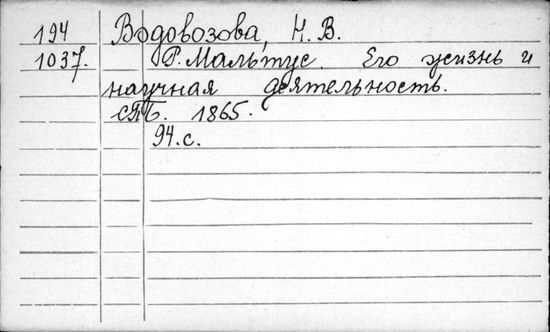 194 Водовозова, Н. В.
1037. Р. Мальтус. Его жизнь и
научная деятельность.
СПБ. 1865.
94 с.